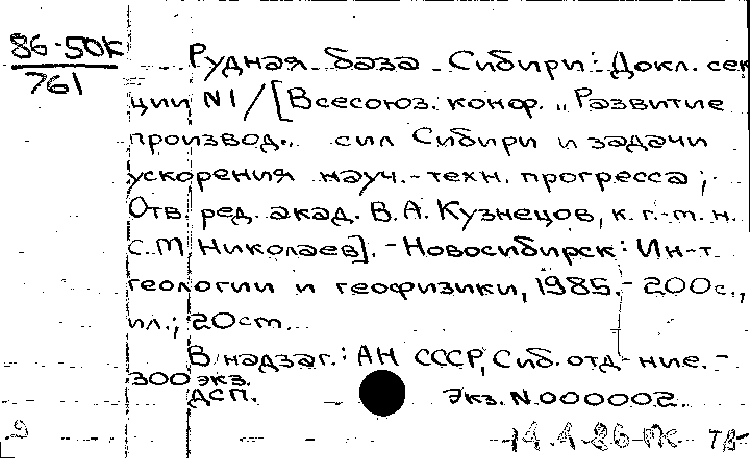 86-50К
761
Рудная база Сибири: Докл. сек
ции N1/[Всесоюз. конф. „Развитие
производ. сил Сибири и задачи
ускорения науч.-техн. прогресса;
Отв. ред. акад. В.А. Кузнецов, к. г.-м. н.
С.М Николаев]. - Новосибирск: Ин-т
геологии и геофизики, 1985. - 200с.,
ил.; 20см.
В надзаг.: АН СССР, Сиб. отд-ние. -
300 экз.
ДСП. Экз. N 000002.